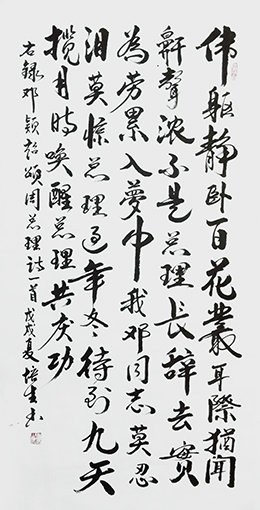 伟躯静卧百花叢耳際猶闻
鼾聲浓不是总理长辞去實
為劳累入夢中我邓同志莫忍
泪莫惊总理过年冬待到九天
揽月時唤醒总理共庆功
右録邓颖超颂周总理詩一首戊戌夏培生书